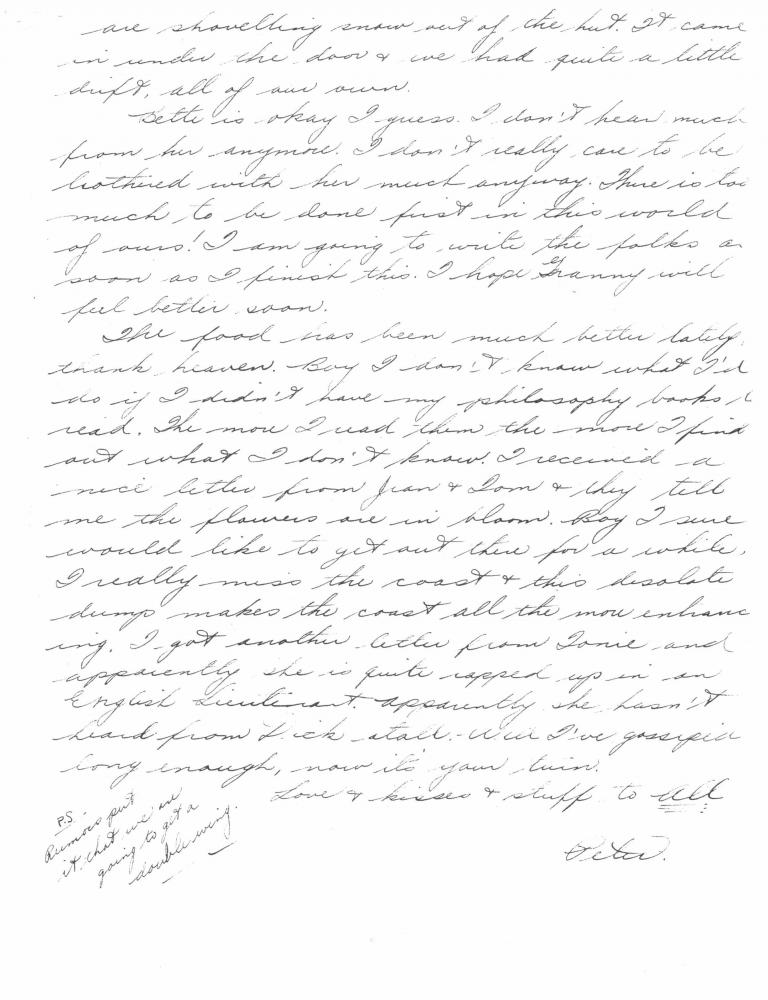 are shovelling snow out of the hut. It came
in under the door & we had quite a little
drift, all of our own.
Bette is okay I guess. I don't hear much
from her anymore. I don't really care to be
bothered with her much anyway. There is too
much to be done first in this world
of ours! I am going to write the folks as
soon as I finish this. I hope Granny will
feel better soon.
The food has been much better lately,
thank heaven. Boy I don't know what I'd
do if I didn't have my philosophy books
read. The more I read them the more I find
out what I don't know. I received a
nice letter from Jean & Tom & they tell
me the flowers are in bloom. Boy I sure
would like to get out there for a while.
I really miss the coast & this desolate
dump makes the coast all the more enhanc
ing. I got another letter from Tonie and
apparently she is quite rapped up in an
English Lieutenant. apparently she hasn't
heard from Dick atall. - Well I've gossiped
long enough, now it's your turn.
Love & kisses & stuff to all
Peter.
P.S.
Rumors put
it, that we are
going to get a
double wing.